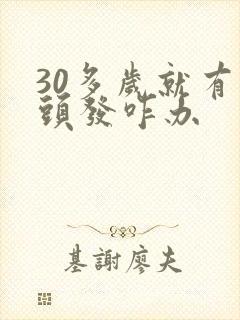 30多歲就有
頭發咋办
基謝廖夫